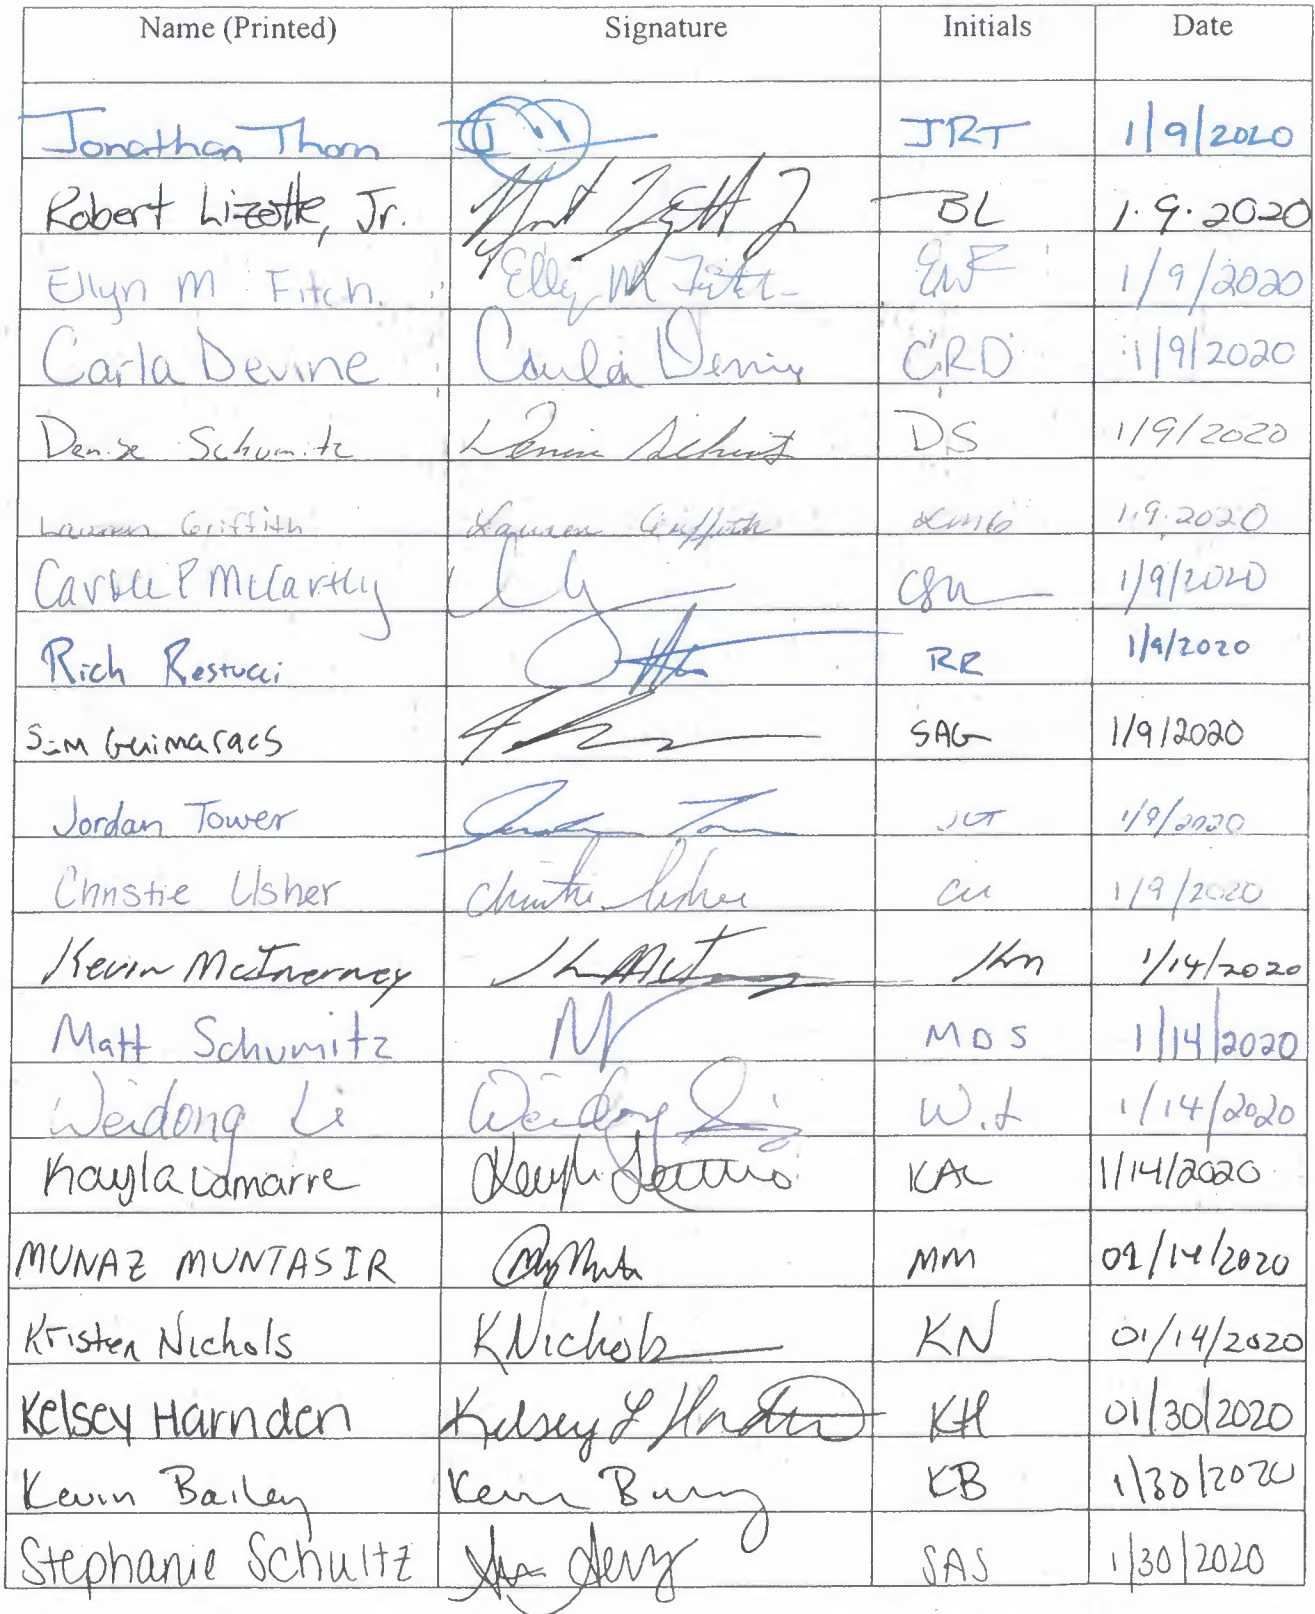 Name (Printed) Signature Initials Date
Jonathan Thorn JRT 1/9/2020
Robert Lizotte, Jr. BL 1.9.2020
Ellyn M Fitch Ellyn M Fitch EMF 1/9/2020
Carla Devine Carla Devine CRD 1/9/2020
Denise Schumitz DS 1/9/2020
Lauren Griffith Lauren Griffith LMG 1.9.2020
McCarthy 1/9/2020
Rich Restucci RR 1/9/2020
Guimaraes SAG 1/9/2020
Jordan Tower 1/9/2020
Christie Usher Christie Usher CU 1/9/2020
Kevin McInerney KM 1/14/2020
Matt Schumitz M MDS 1/14/2020
Weidong Li Weidong W.L 1/14/2020
Kayla Lamarre KAL 1/14/2020
MUNAZ MUNTASIR MM 01/14/2020
Kristen Nichols KNichols KN 01/14/2020
Kelsey Harnden Kelsey L Harnden KH 01/30/2020
Kevin Bailey Kevin KB 1/30/2020
Stephanie Schultz SAS 1/30/2020